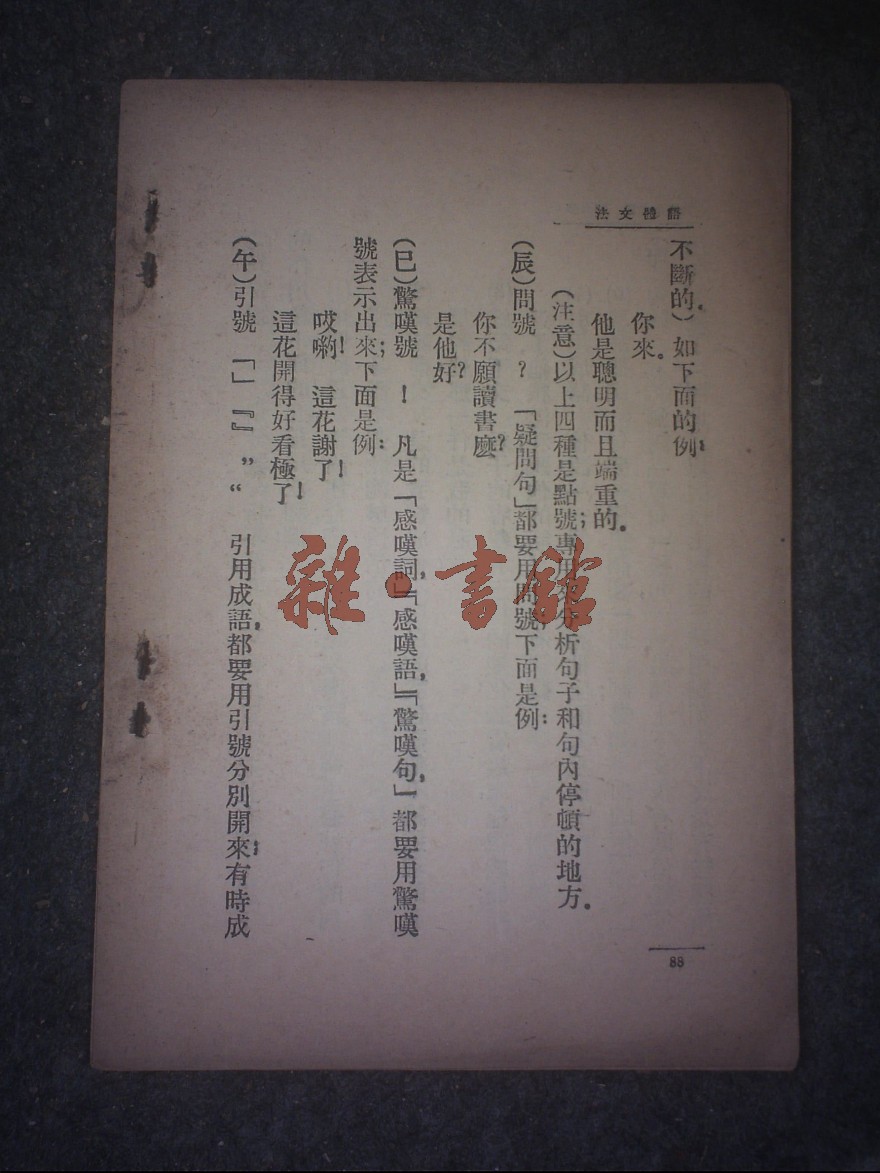 語體文法
不斷的。）如下面的例：
你來。
他是聰明而且端重的。
（注意）以上四種是點號；專用來分析句子和句內停頓的地方。
（辰）問號　？　「疑問句」都要用問號；下面是例：
你不願讀書麽？
是他好？
（巳）驚嘆號　！　凡是「感嘆詞，」「感嘆語，」「驚嘆句，」都要用驚嘆
號表示出來；下面是例：
哎喲！　這花謝了！
這花開得好看極了！
（午）引號　「」『』” “　引用成語，都要用引號分別開來；有時成
88
雜·書館